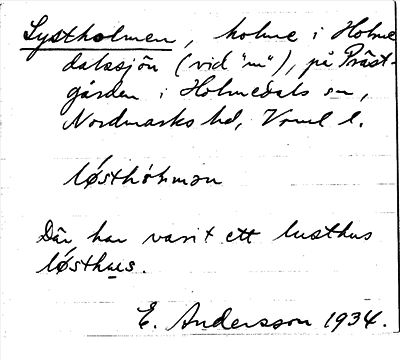 Lystholmen, holme i Holme
dalssjön (vid "m"), på Präst-
gården i Holmedals sn,
Nordmarks hd, Vrml l.
løsthòhmən
Där har varit ett lusthus
løsthus.
E. Andersson 1934.